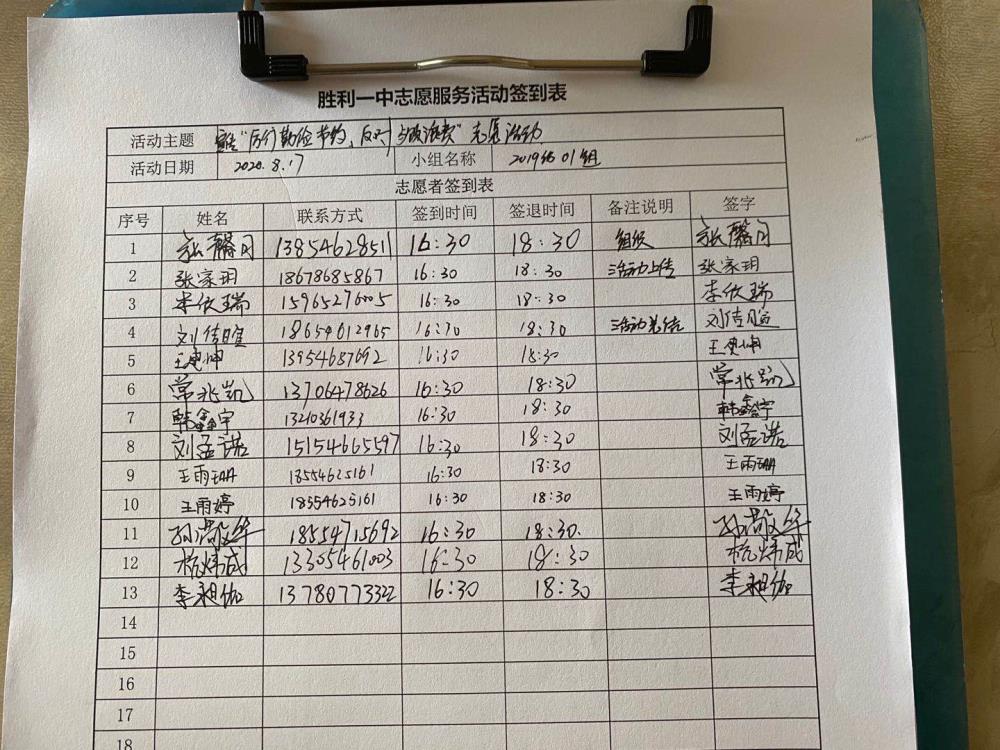 胜利一中志愿服务活动签到表
活动主题 "厉行勤俭节约、反对 浪费"志愿活动
活动日期 2020.8.17 小组名称 2019级01组
志愿者签到表
序号 姓名 联系方式 签到时间 签退时间 备注说明 签字
1 张馨月 13854628511 16:30 18:30 组长 张馨月
2 张家玥 18678685867 16:30 18:30 活动上传 张家玥
3 李欣瑞 15965276005 16:30 18:30 李欣瑞
4 刘倍暄 18654612965 16:30 18:30 活动总结 刘倍暄
5 13954687692 16:30 18:30
6 常兆凯 13706478626 16:30 18:30 常兆凯
7 韩鑫宇 13210361933 16:30 18:30 韩鑫宇
8 刘孟诺 15154665597 16:30 18:30 刘孟诺
9 王雨珊 18554625161 16:30 18:30 王雨珊
10 王雨婷 18554625161 16:30 18:30 王雨婷
11 18554715692 16:30 18:30.
12 杭炜成 13305461003 16:30 18:30 杭炜成
13 李昶伽 13780773322 16:30 18:30 李昶伽
14
15
16
17
18